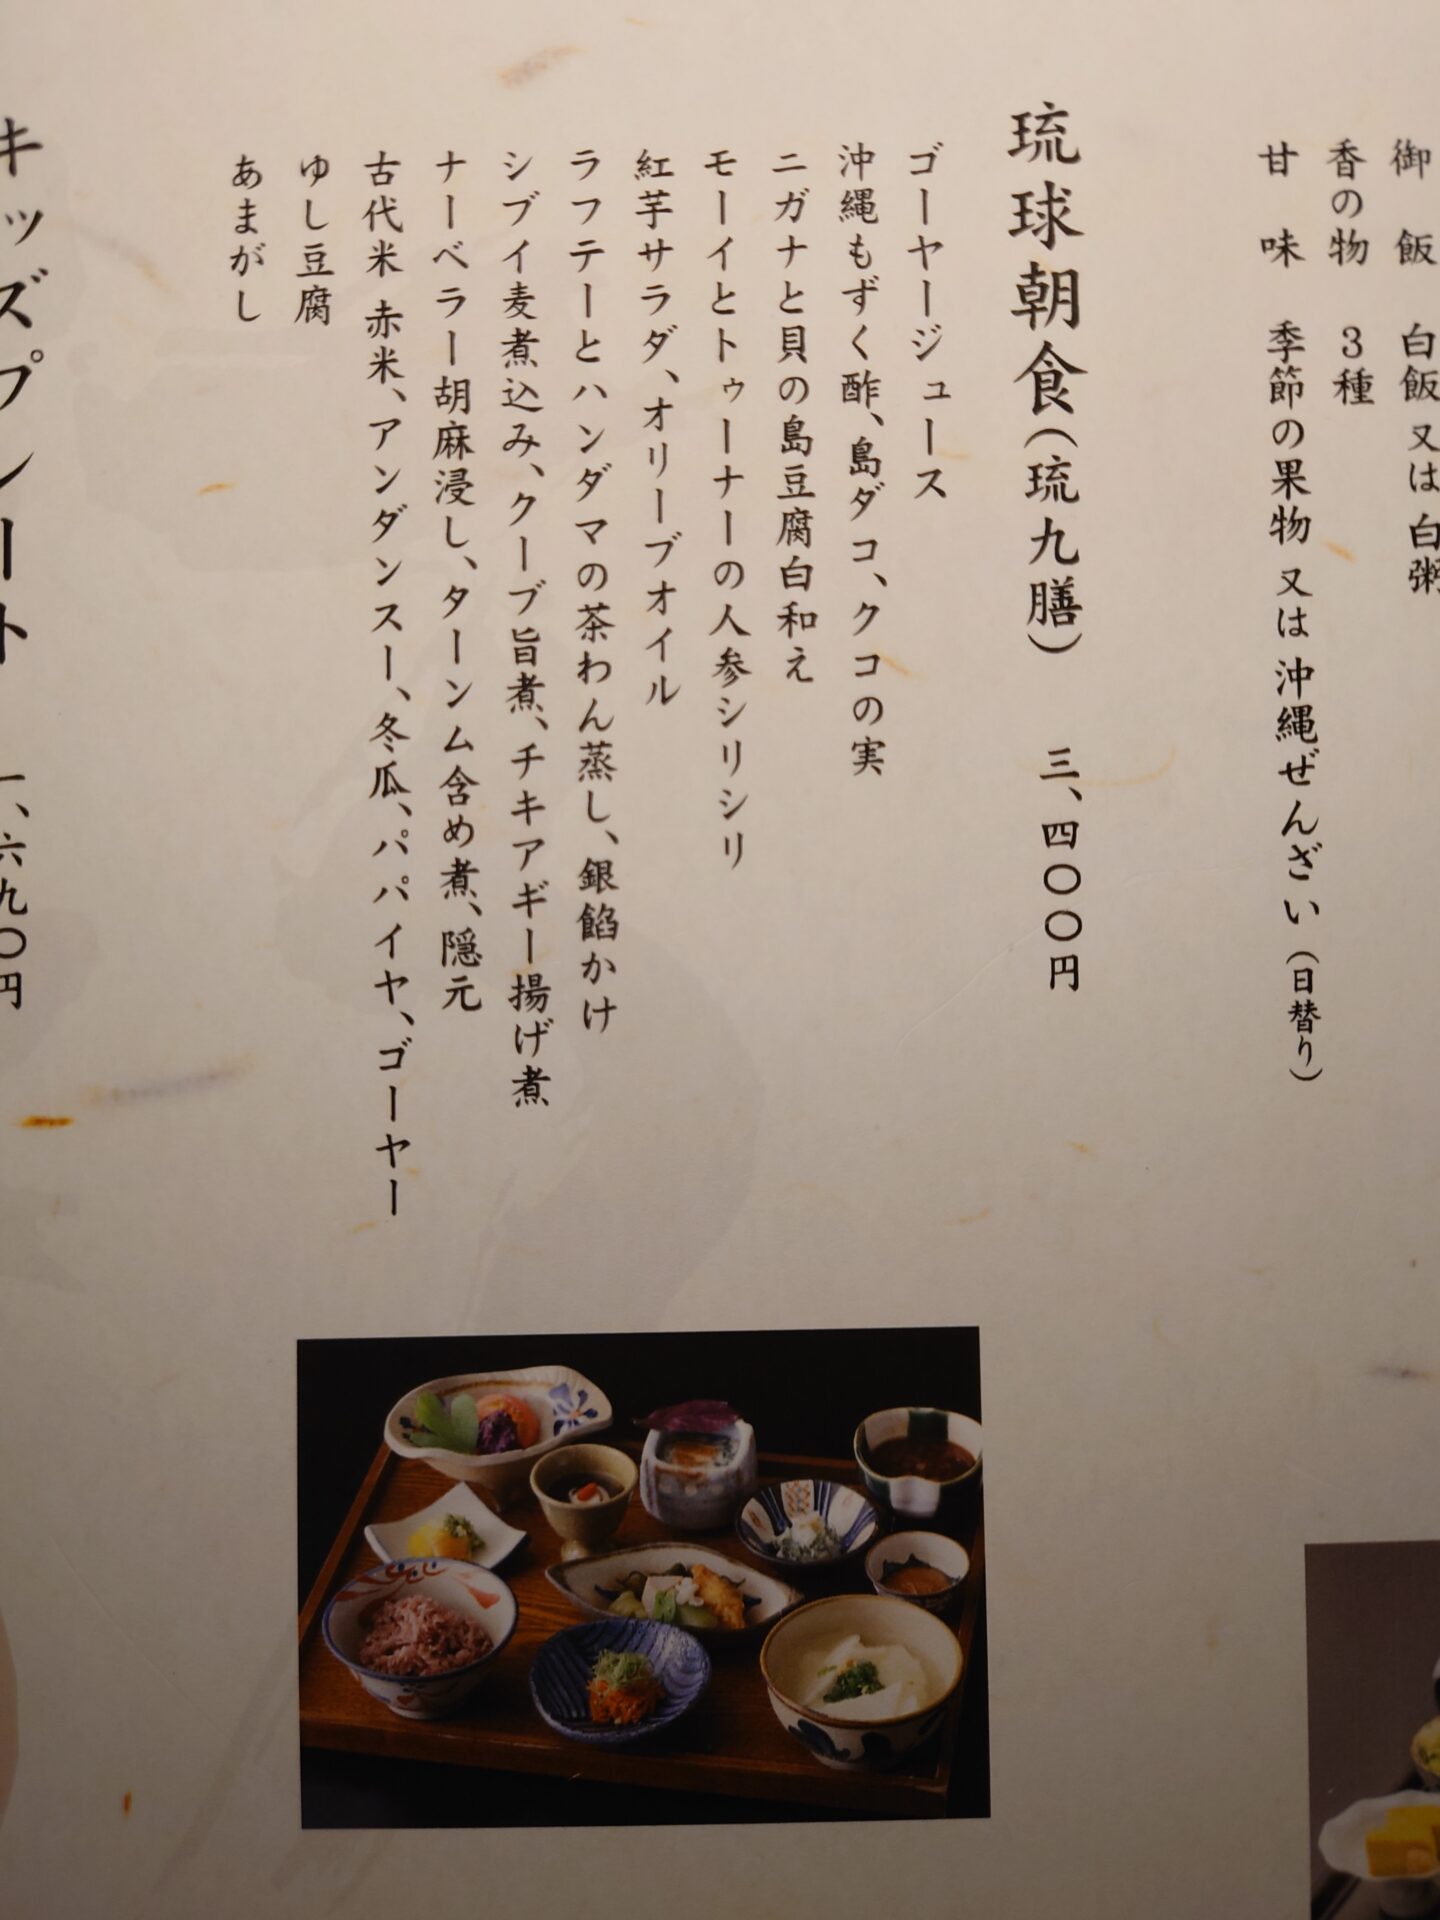 御飯 白飯又は白粥
香の物 3種
甘味 季節の果物 又は 沖縄ぜんざい(日替り)
琉球朝食(琉九膳) 三、四〇〇円
ゴーヤージュース
沖縄もずく酢、島ダコ、クコの実
ニガナと貝の島豆腐白和え
モーイとトゥーナーの人参シリシリ
紅芋サラダ、オリーブオイル
ラフテーとハンダマの茶わん蒸し、銀餡かけ
シブイ麦煮込み、クーブ旨煮、チキアギー揚げ煮
ナーベラー胡麻浸し、ターンム含め煮、隠元
古代米 赤米、アンダンスー、冬瓜、パパイヤ、ゴーヤー
ゆし豆腐
あまがし
キッズプレート 一、六九〇円